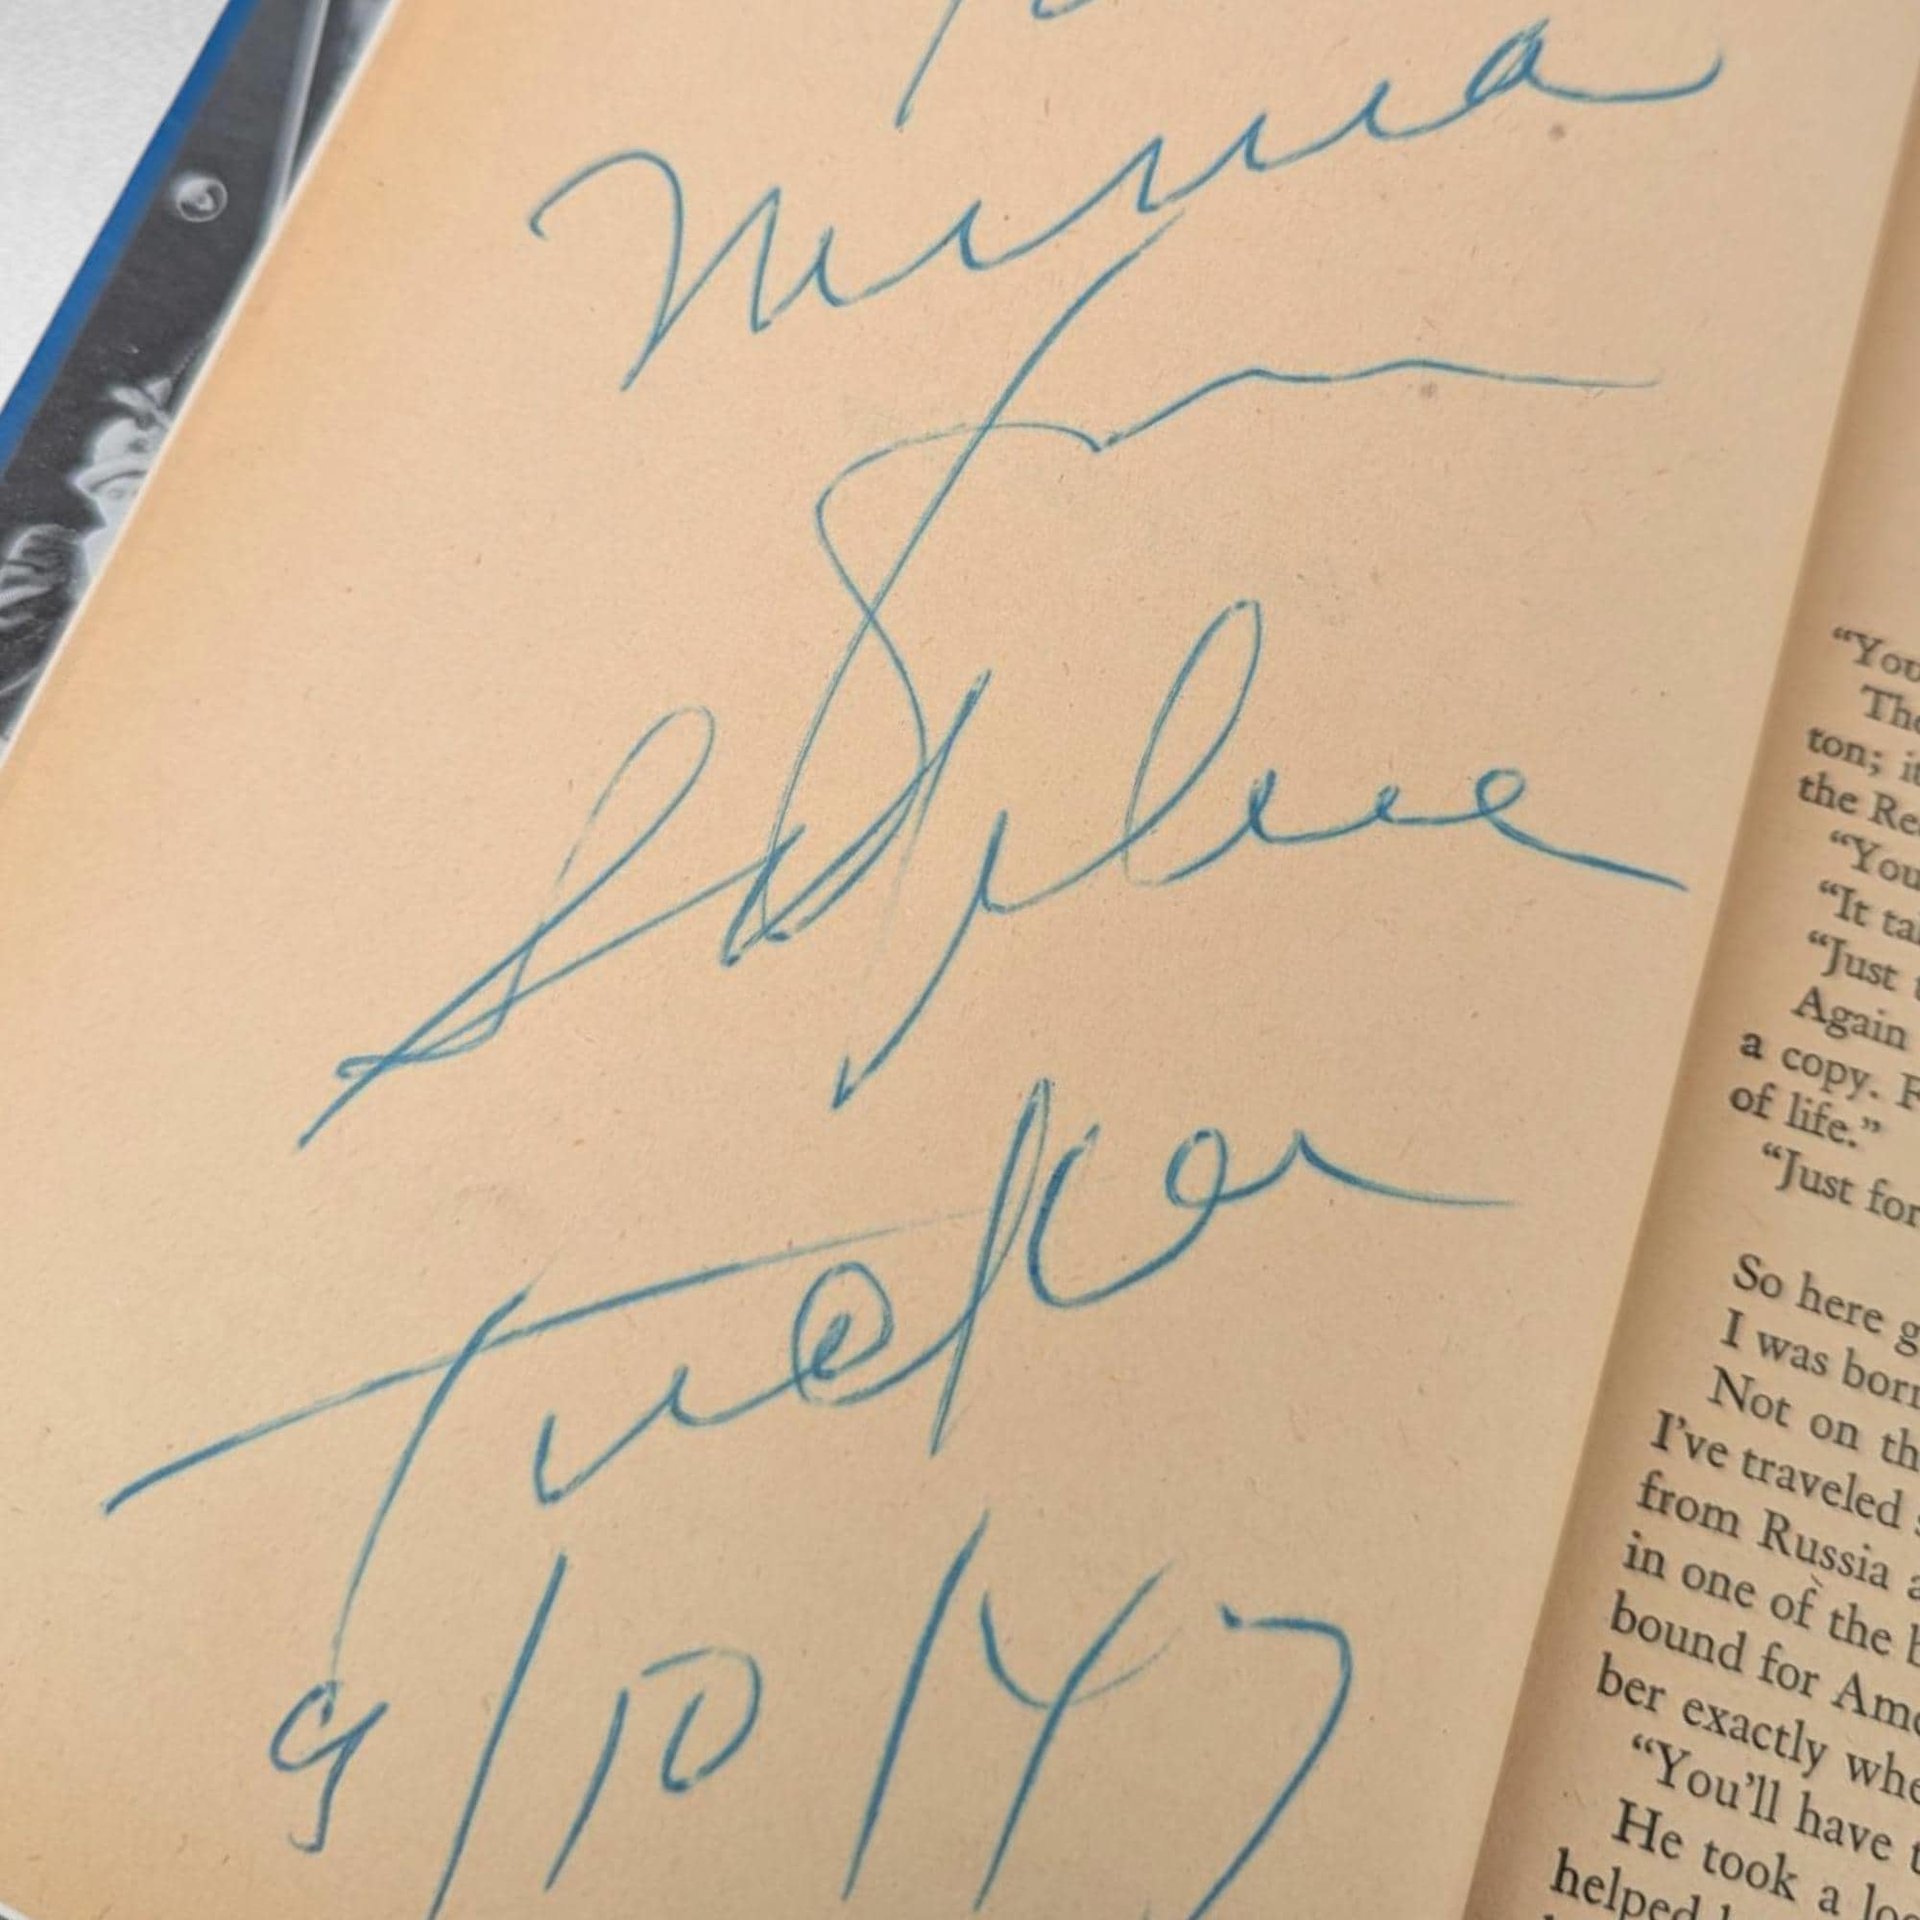 Minna
From
Sophie
Tucker
9/10/47
“You
The
ton; it
the Re
“You
“It tal
“Just t
Again
a copy. F
of life.”
“Just for
So here g
I was born
Not on th
I’ve traveled s
from Russia a
in one of the b
bound for Ame
ber exactly whe
“You’ll have t
He took a loo
helped